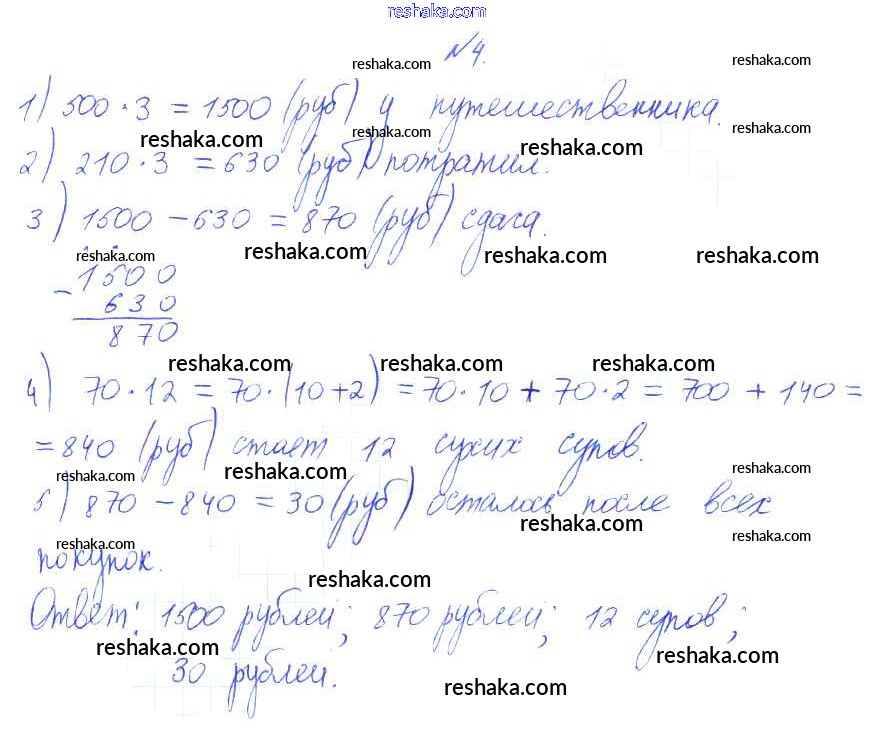 reshaka.com
№4.
reshaka.com reshaka.com
1) 500 · 3 = 1500 (руб) у путешественника.
reshaka.com reshaka.com reshaka.com reshaka.com
2) 210 · 3 = 630 (руб) потратил.
3) 1500 - 630 = 870 (руб) сдача.
reshaka.com reshaka.com reshaka.com reshaka.com
- 1500
630
870
reshaka.com reshaka.com reshaka.com
4) 70 · 12 = 70 · (10 + 2) = 70 · 10 + 70 · 2 = 700 + 140 =
= 840 (руб) стоет 12 сухих супов.
reshaka.com reshaka.com reshaka.com reshaka.com
5) 870 - 840 = 30 (руб) осталось после всех
reshaka.com reshaka.com reshaka.com
покупок.
reshaka.com
Ответ: 1500 рублей; 870 рублей; 12 супов;
reshaka.com reshaka.com reshaka.com
30 рублей.
reshaka.com